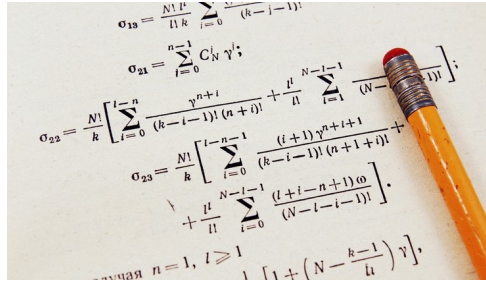 σ₁₃ = N! lˡ / l! k ∑ i=0 (k−i−1)!
σ₂₁ = ∑ i=0 n−1 Cⁱ_N γⁱ;
σ₂₂ = N!/k [ ∑ i=0 l−n γⁿ⁺ⁱ / (k−i−1)! (n+i)! + lˡ/l! ∑ i=1 N−l−1 / (N− 1)! ];
σ₂₃ = N!/k [ ∑ i=0 l−n−1 (i+1) γⁿ⁺ⁱ⁺¹ / (k−i−1)! (n+1+i)! +
+ lˡ/l! ∑ i=0 N−l−1 (l+i−n+1) ω / (N−l−i−1)! ].
n=1, l⩾1
[1 + (N − k−1 / ) γ],